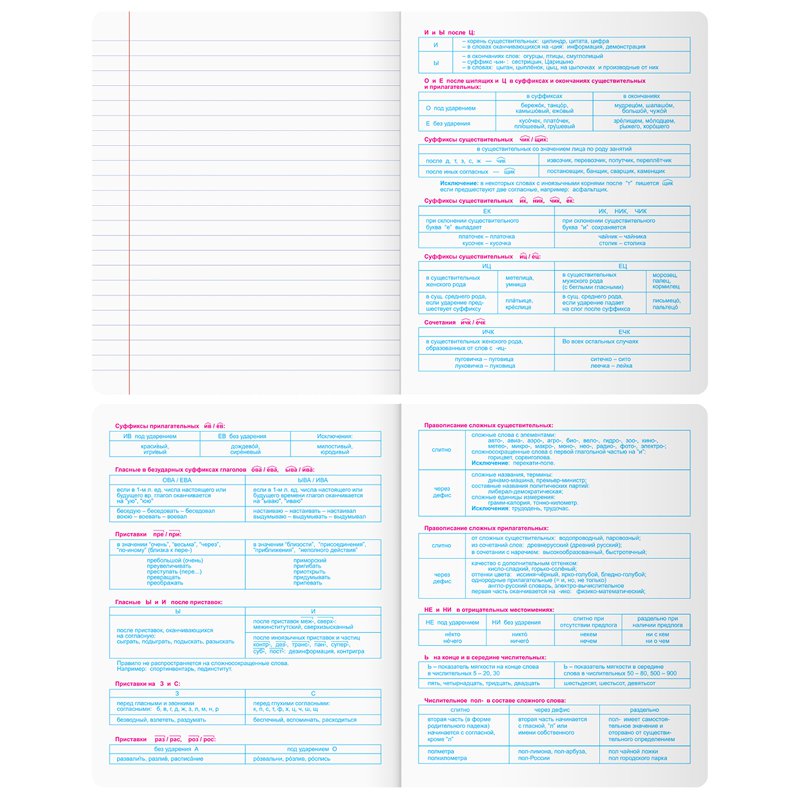 И и Ы после Ц:
И
– корень существительных: цилиндр, цитата, цифра
– в словах оканчивающихся на -ция: информация, демонстрация
Ы
– в окончаниях слов: огурцы, птицы, смуглолицый
– суффикс -ын- : сестрицын, Царицыно
– в словах: цыган, цыплёнок, цыц, на цыпочках и производные от них
О и Е после шипящих и Ц в суффиксах и окончаниях существительных
и прилагательных:
в суффиксах
в окончаниях
О под ударением
бережок, танцор,
камышовый, ежовый
мудрецом, шалашом,
большой, чужой
Е без ударения
кусочек, платочек,
плюшевый, грушевый
зрелищем, молодцем,
рыжего, хорошего
Суффиксы существительных чик / щик:
в существительных со значением лица по роду занятий
после д, т, з, с, ж — чик
извозчик, перевозчик, попутчик, переплётчик
после иных согласных — щик
постановщик, банщик, сварщик, каменщик
Исключение: в некоторых словах с иноязычными корнями после "т" пишется щик
если предшествуют две согласные, например: асфальтщик.
Суффиксы существительных ик, ник, чик, ек:
ЕК
ИК, НИК, ЧИК
при склонении существительного
буква "е" выпадает
при склонении существительного
буква "и" сохраняется
платочек – платочка
кусочек – кусочка
чайник – чайника
столик – столика
Суффиксы существительных иц / ец:
ИЦ
ЕЦ
в существительных
женского рода
метелица,
умница
в существительных
мужского рода
(с беглыми гласными)
морозец,
палец,
кормилец
в сущ. среднего рода,
если ударение пред-
шествует суффиксу
платьице,
креслице
в сущ. среднего рода,
если ударение падает
на слог после суффикса
письмецо,
пальтецо
Сочетания ичк / ечк
ИЧК
ЕЧК
в существительных женского рода,
образованных от слов с -иц-
Во всех остальных случаях
пуговичка – пуговица
луковичка – луковица
ситечко – сито
леечка – лейка
Суффиксы прилагательных ив / ев:
ИВ под ударением
ЕВ без ударения
Исключения:
красивый,
игривый
дождевой,
сиреневый
милостивый,
юродивый
Гласные в безударных суффиксах глаголов ова / ева, ыва / ива:
ОВА / ЕВА
ЫВА / ИВА
если в 1-м л. ед. числа настоящего или
будущего вр. глагол оканчивается
на "ую", "юю"
если в 1-м л. ед. числа настоящего или
будущего времени глагол оканчивается
на "ываю", "иваю"
беседую – беседовать – беседовал
воюю – воевать – воевал
настаиваю – настаивать – настаивал
выдумываю – выдумывать – выдумывал
Приставки пре / при:
в значении "очень", "весьма", "через",
"по-иному" (близка к пере-)
в значении "близости", "присоединения",
"приближения", "неполного действия"
пребольшой (очень)
преувеличивать
преступать (пере...)
превращать
преображать
приморский
пригибать
приоткрыть
придумывать
припевать
Гласные Ы и И после приставок:
Ы
И
после приставок, оканчивающихся
на согласную:
сыграть, подыграть, подыскать, разыскать
после приставок меж-, сверх-
межинститутский, сверхизысканный
после иноязычных приставок и частиц
контр-, дез-, транс-, пан-, супер-,
суб-, пост-: дезинформация, контригра
Правило не распространяется на сложносокращенные слова.
Например: спортинвентарь, пединститут.
Приставки на З и С:
З
С
перед гласными и звонкими
согласными: б, в, г, д, ж, з, л, м, н, р
перед глухими согласными:
к, п, с, т, ф, х, ц, ч, ш, щ
безводный, взлететь, раздумать
беспечный, вспоминать, расходиться
Приставки раз / рас, роз / рос:
без ударения А
под ударением О
развалить, разлив, расписание
розвальни, розлив, роспись
Правописание сложных существительных:
слитно
сложные слова с элементами:
авто-, авиа-, аэро-, агро-, био-, вело-, гидро-, зоо-, кино-,
метео-, микро-, макро-, моно-, нео-, радио-, фото-, электро-;
сложносокращенные слова с первой глагольной частью на "и":
горицвет, сорвиголова.
Исключение: перекати-поле.
через
дефис
сложные названия, термины:
динамо-машина, премьер-министр;
составные названия политических партий:
либерал-демократическая;
сложные единицы измерения:
грамм-калория, тонно-километр.
Исключения: трудодень, трудочас.
Правописание сложных прилагательных:
слитно
от сложных существительных: водопроводный, паровозный;
из сочетаний слов: древнерусский (древний русский);
в сочетании с наречием: высокообразованный, быстротечный;
через
дефис
качество с дополнительным оттенком:
кисло-сладкий, горько-солёный;
оттенки цвета: иссиня-чёрный, ярко-голубой, бледно-голубой;
однородные прилагательные (= и, но, не только)
англо-русский словарь, электро-вычислительное
первая часть оканчивается на -ико: физико-математический;
НЕ и НИ в отрицательных местоимениях:
НЕ под ударением
НИ без ударения
слитно при
отсутствии предлога
раздельно при
наличии предлога
некто
нечего
никто
ничего
некем
нечем
ни с кем
ни о чем
Ь на конце и в середине числительных:
Ь – показатель мягкости на конце слова
в числительных 5 – 20, 30
Ь – показатель мягкости в середине
слова в числительных 50 – 80, 500 – 900
пять, четырнадцать, тридцать, двадцать
шестьдесят, шестьсот, девятьсот
Числительное пол- в составе сложного слова:
слитно
через дефис
раздельно
вторая часть (в форме
родительного падежа)
начинается с согласной,
кроме "л"
вторая часть начинается
с гласной, "л" или
имени собственного
пол- имеет самостоя-
тельное значение и
оторвано от существи-
тельного определением
полметра
полкилометра
пол-лимона, пол-арбуза,
пол-России
пол чайной ложки
пол городского парка